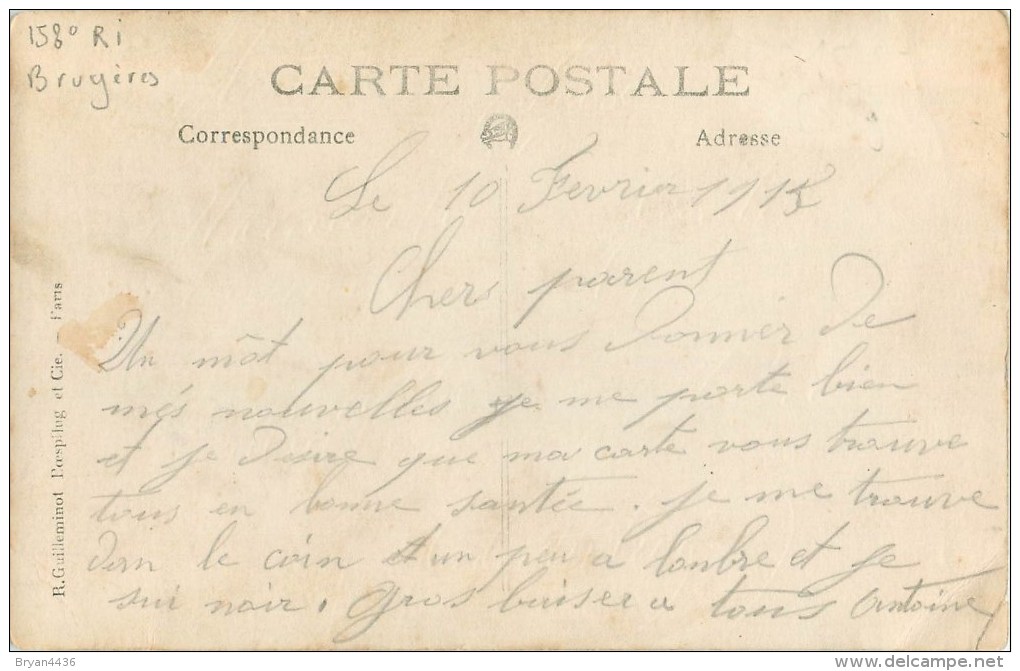 158° RI
Bruyères
CARTE POSTALE
Correspondance
Adresse
Le 10 Fevrier 1915
Chers parent
Un môt pour vous donner de
més nouvelles je me porte bien
et je désire que ma carte vous trouve
tous en bonne santée. je me trouve
dan le coin et un peu a lonbre et je
sui noir. Gros baiser a tous Antoine
R. Guilleminot Bœspflug et Cie. — Paris
Bryan4436
delcampe.net